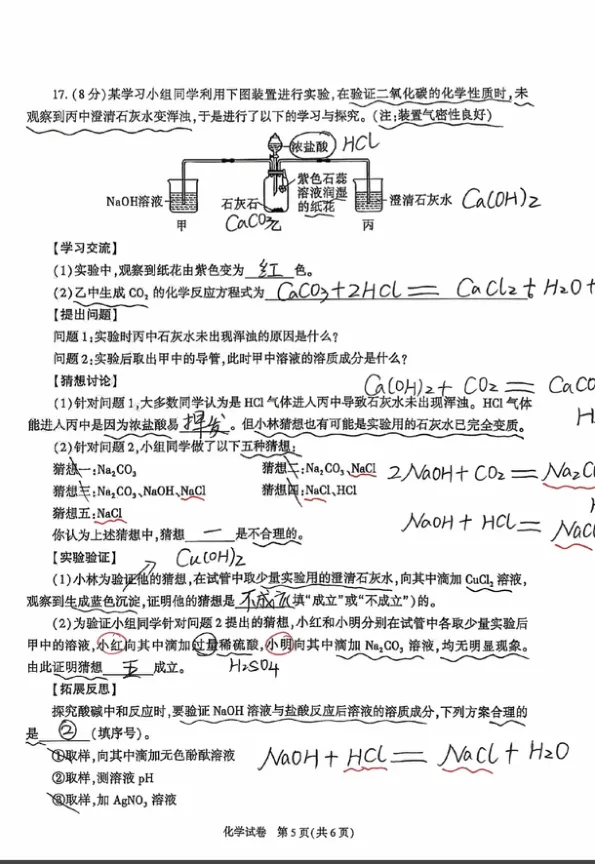 17.(8分)某学习小组同学利用下图装置进行实验,在验证二氧化碳的化学性质时,未
观察到丙中澄清石灰水变浑浊,于是进行了以下的学习与探究。(注:装置气密性良好)
浓盐酸 HCl
紫色石蕊
溶液润湿
的纸花
NaOH溶液
石灰石
澄清石灰水 Ca(OH)2
CaCO3
甲 乙 丙
【学习交流】
(1)实验中,观察到纸花由紫色变为 红 色。
(2)乙中生成 CO₂ 的化学反应方程式为 CaCO3+2HCl══CaCl2+H2O+
【提出问题】
问题1:实验时丙中石灰水未出现浑浊的原因是什么?
问题2:实验后取出甲中的导管,此时甲中溶液的溶质成分是什么?
【猜想讨论】
Ca(OH)2+CO2══CaCO
(1)针对问题1,大多数同学认为是 HCl 气体进入丙中导致石灰水未出现浑浊。HCl 气体
能进入丙中是因为浓盐酸易 挥发 。但小林猜想也有可能是实验用的石灰水已完全变质。
(2)针对问题2,小组同学做了以下五种猜想:
猜想一:Na₂CO₃ 猜想二:Na₂CO₃、NaCl 2NaOH+CO2══Na2C
猜想三:Na₂CO₃、NaOH、NaCl 猜想四:NaCl、HCl
猜想五:NaCl NaOH+HCl══NaCl
你认为上述猜想中,猜想 一 是不合理的。
【实验验证】 Cu(OH)2
(1)小林为验证他的猜想,在试管中取少量实验用的澄清石灰水,向其中滴加 CuCl₂ 溶液,
观察到生成蓝色沉淀,证明他的猜想是 不成立 (填“成立”或“不成立”)的。
(2)为验证小组同学针对问题2提出的猜想,小红和小明分别在试管中各取少量实验后
甲中的溶液,小红向其中滴加过量稀硫酸,小明向其中滴加 Na₂CO₃ 溶液,均无明显现象。
由此证明猜想 五 成立。 H2SO4
【拓展反思】
探究酸碱中和反应时,要验证 NaOH 溶液与盐酸反应后溶液的溶质成分,下列方案合理的
是 ② (填序号)。
①取样,向其中滴加无色酚酞溶液 NaOH+HCl══NaCl+H2O
②取样,测溶液 pH
③取样,加 AgNO₃ 溶液
化学试卷 第5页(共6页)